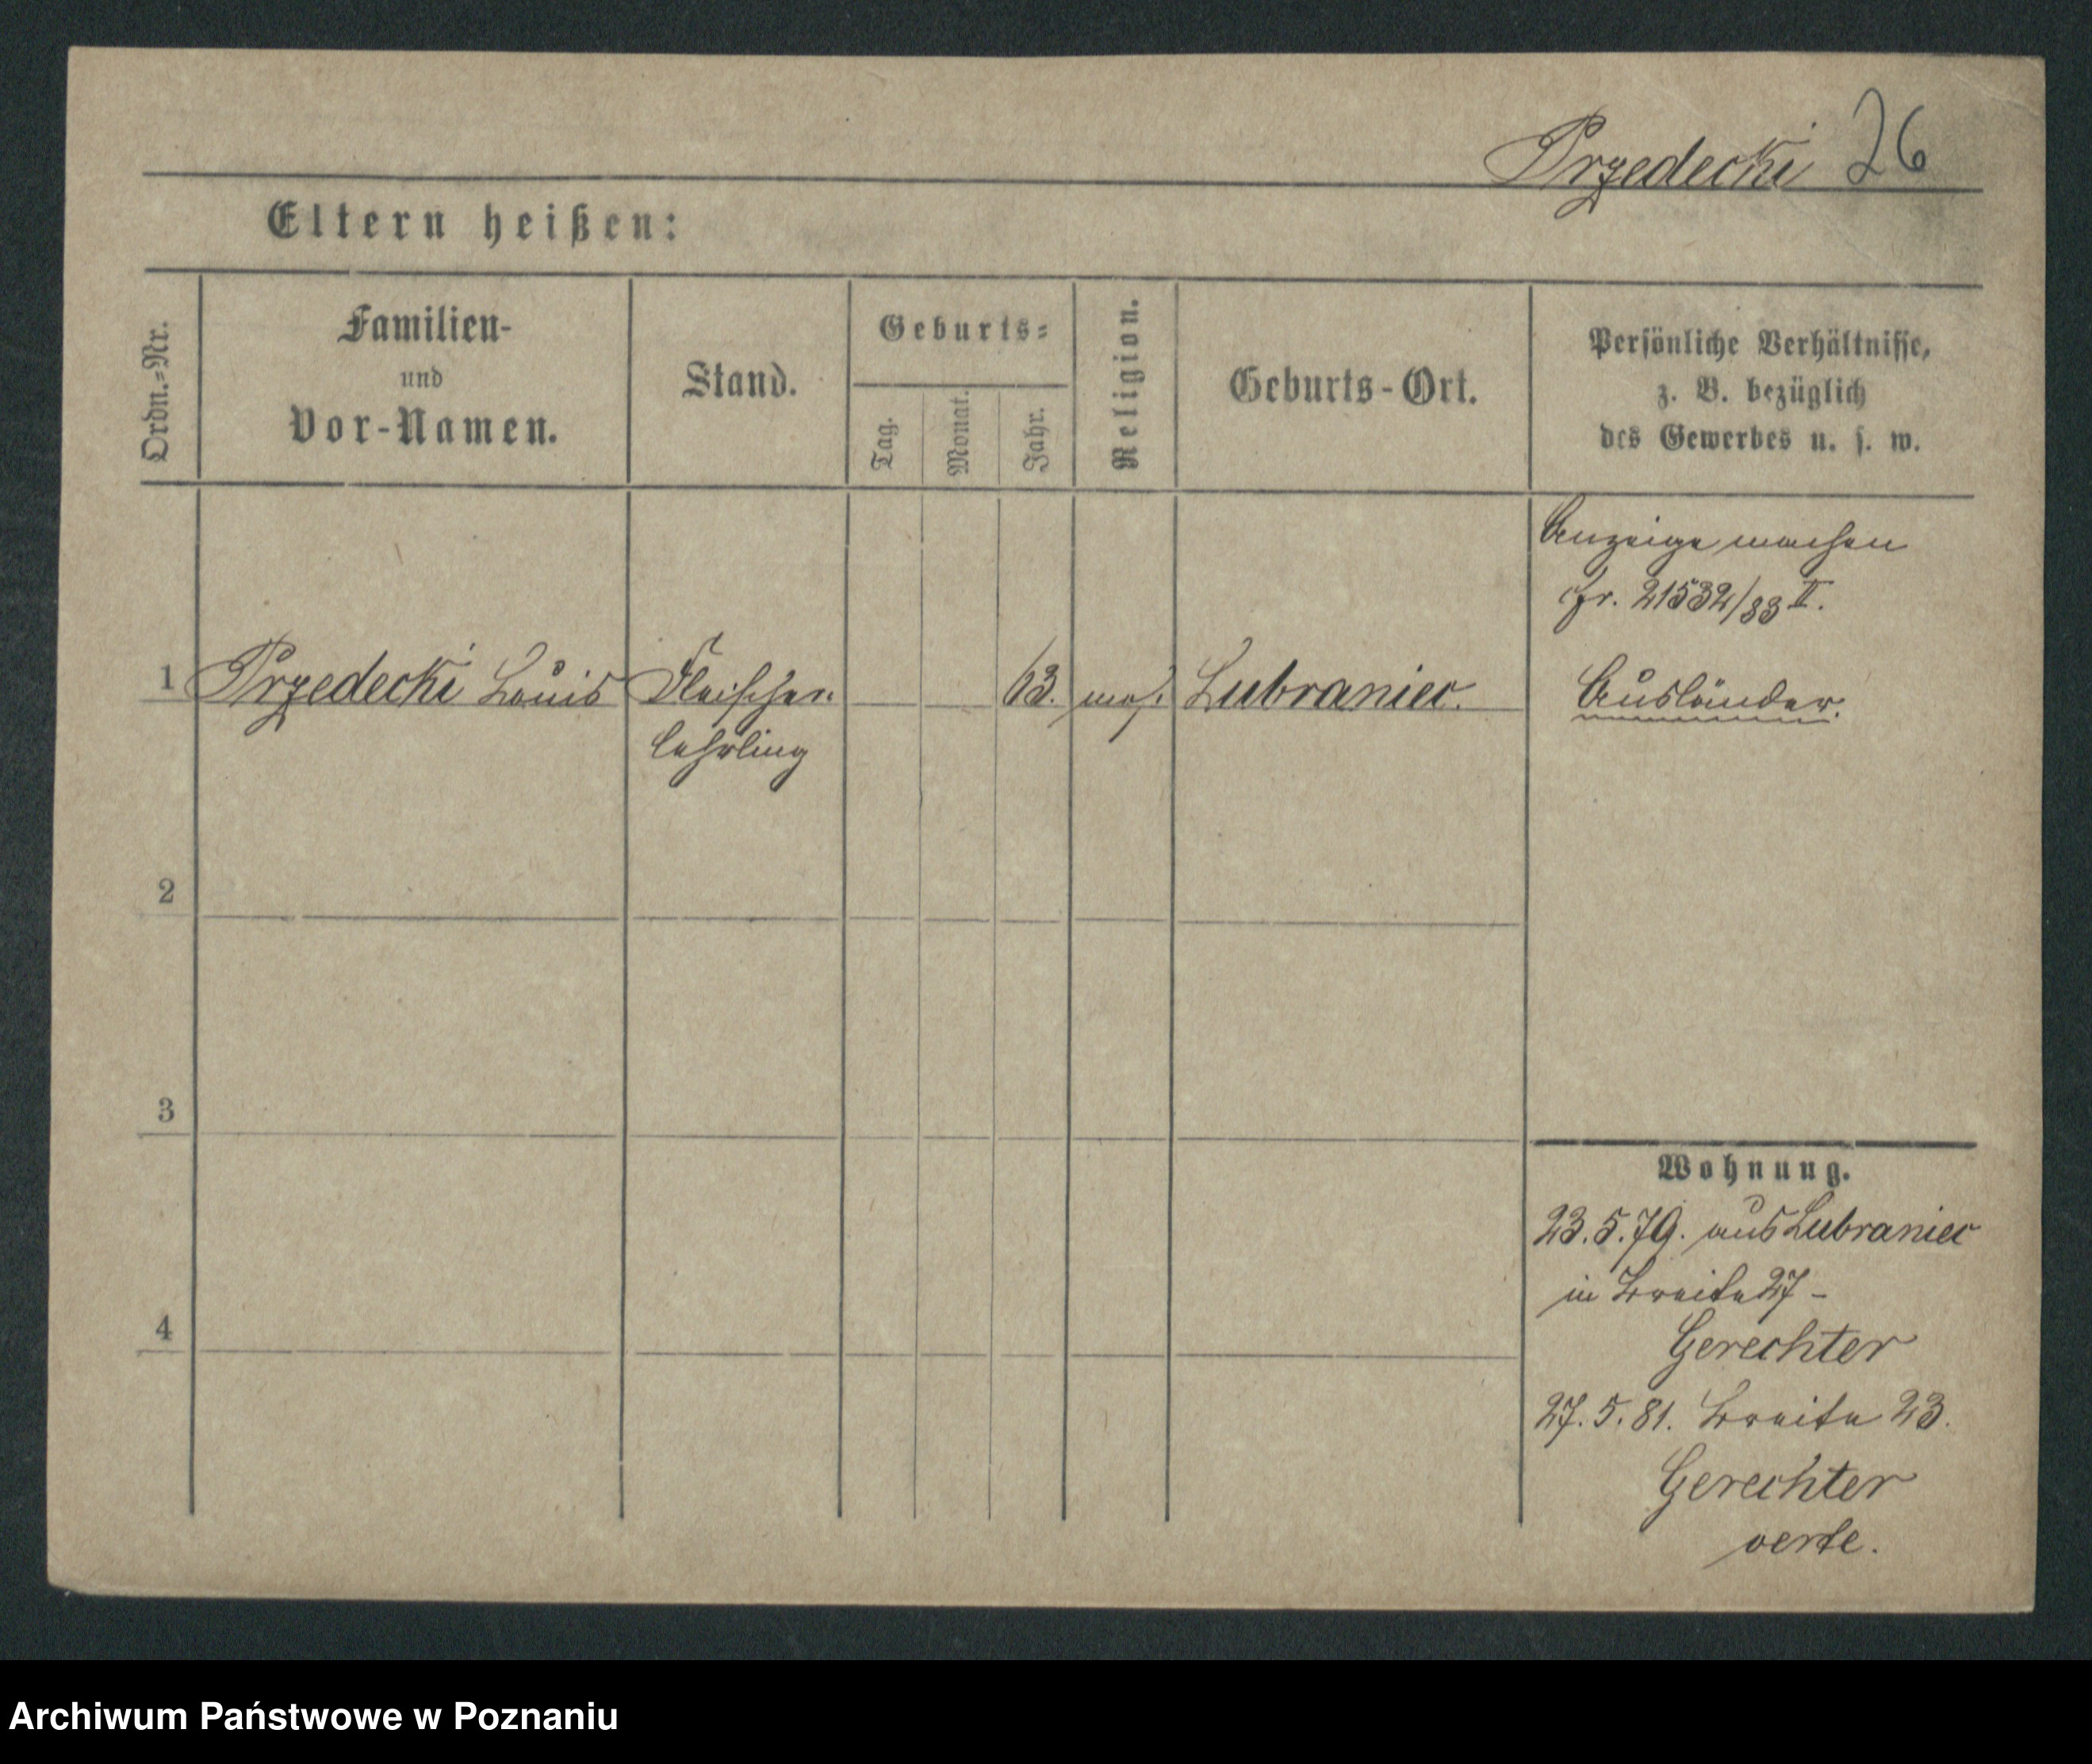 Przedecki 26
Eltern heißen:
Ordn.-Nr.
Familien-
und
Vor-Namen.
Stand.
Geburts-
Tag.
Monat.
Jahr.
Religion.
Geburts-Ort.
Persönliche Verhältnisse,
z. B. bezüglich
des Gewerbes u. s. w.
Anzeige machen
cfr. 21532/83 II.
1 Przedecki Louis Fleischer- 63. mos. Lubraniec. Ausländer.
lehrling
2
3
4
Wohnung.
23.5.79. aus Lubraniec
in Breite 27 -
Gerechter
27.5.81. Breite 23.
Gerechter
verte.
Archiwum Państwowe w Poznaniu